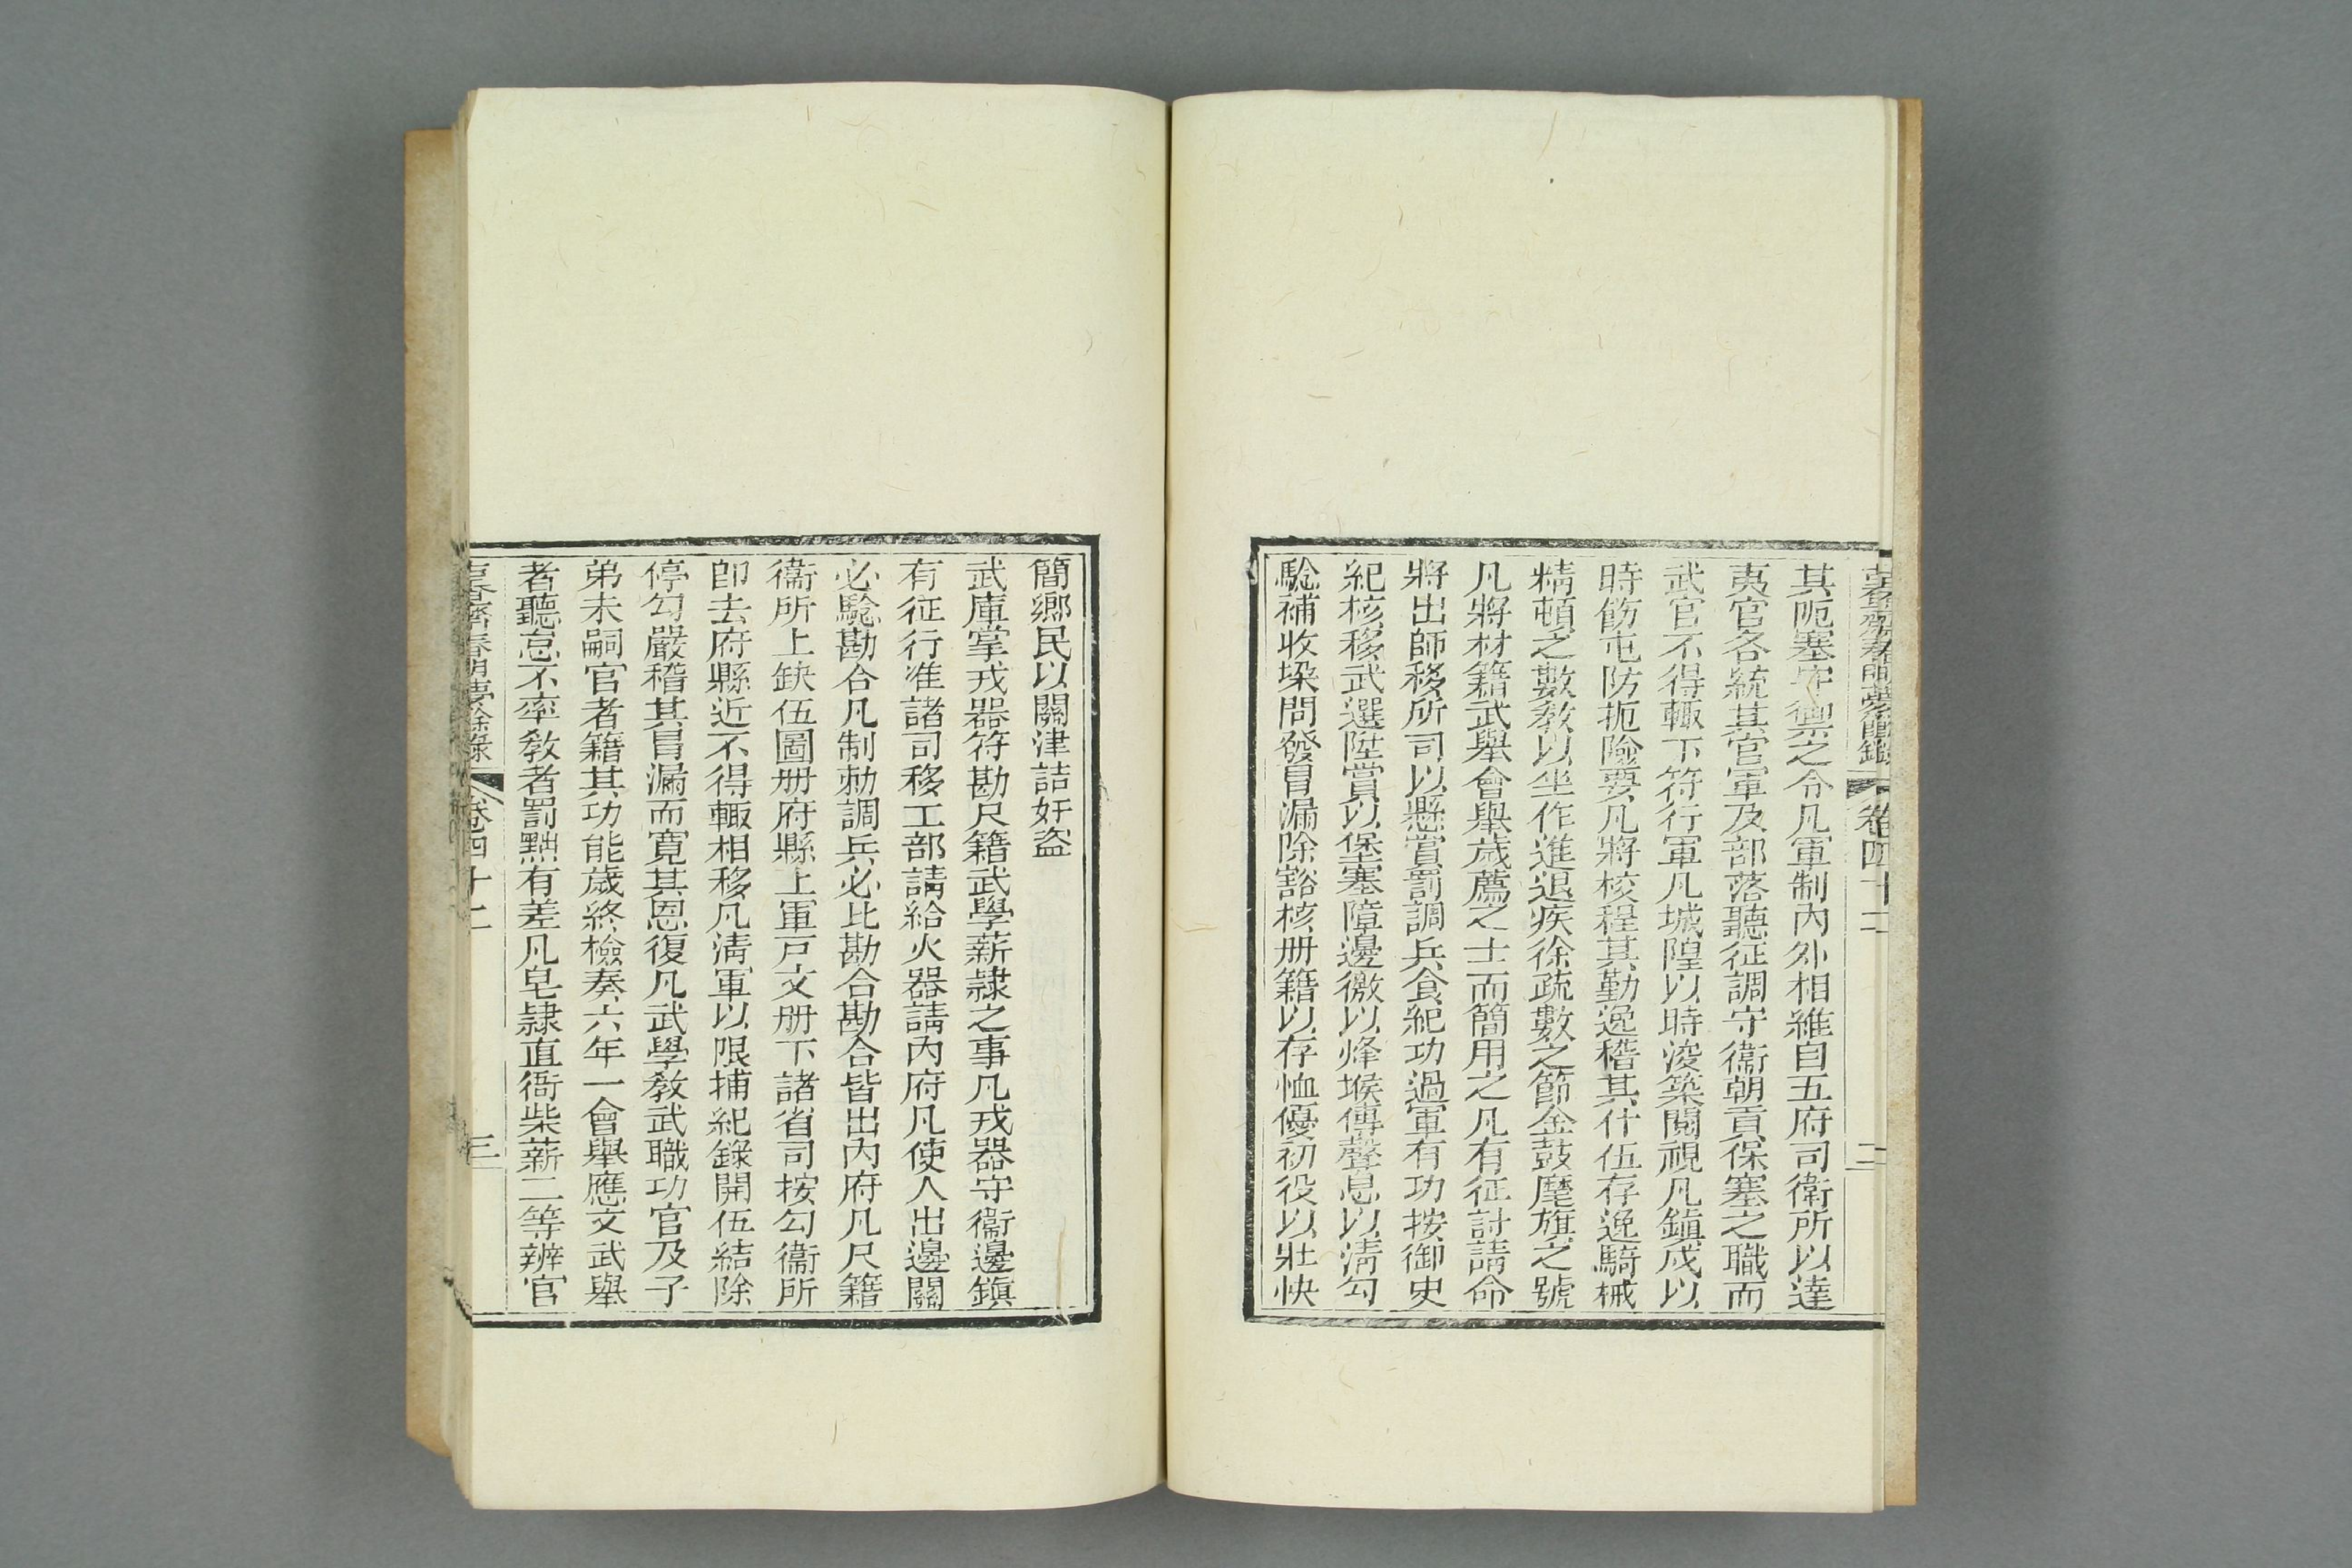 古香齋春明夢餘錄 卷四十二 二
其阨塞守禦之令凡軍制內外相維自五府司衛所以達
夷官各統其官軍及部落聽征調守衞朝貢保塞之職而
武官不得輒下符行軍凡城隍以時浚築閱視凡鎭戍以
時飭屯防扼險要凡將校程其勤逸稽其什伍存逸騎械
精頓之數敎以坐作進退疾徐疏數之節金鼓麾旗之號
凡將材籍武舉會舉歲薦之士而簡用之凡有征討請命
將出師移所司以懸賞罰調兵食紀功過軍有功按御史
紀核移武選陞賞以保塞障邊徼以烽堠傳聲息以淸勾
騐補收垜問發冒漏除豁核册籍以存恤優初役以壯快
簡鄉民以關津詰奸盜
武庫掌戎器符勘尺籍武學薪隷之事凡戎器守衞邊鎭
有征行准諸司移工部請給火器請內府凡使人出邊關
必騐勘合凡制勅調兵必比勘合勘合皆出內府凡尺籍
衞所上缺伍圖册府縣上軍戸文册下諸省司按勾衞所
卽去府縣近不得輒相移凡淸軍以限捕紀錄開伍結除
停勾嚴稽其冒漏而寬其恩復凡武學敎武職功官及子
弟未嗣官者籍其功能歲終檢奏六年一會舉應文武舉
者聽怠不率敎者罰黜有差凡皂隷直衙柴薪二等辨官
古香齋春明夢餘錄 卷四十二 三